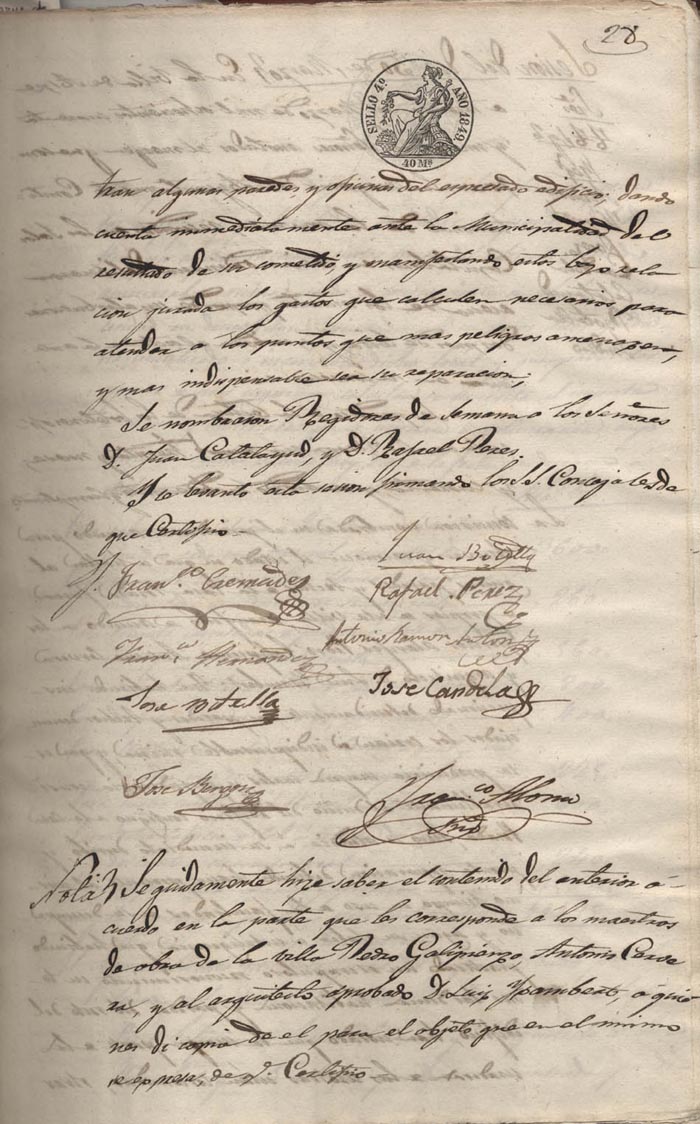 28
SELLO 4º AÑO 1849.
40 Ms
tran algunas paredes, y oficinas del espresado edificio; dando
cuenta inmediatamente ante la Municipalidad del
resultado de su cometido, y manifestando estos bajo rela
cion jurada los gastos que calculen necesarios para
atender a los puntos que mas peligros amenazen,
y mas indispensable sea su reparacion;
Se nombraron Regidores de Semana a los Señores
D. Juan Catalayud, y D. Rafael Peres.
Y se levanto esta sesion firmando los S.S. Concejales de
que Certifico
Franco Cremades
Juan
Rafael Perez
Antonio Ramon Anton
Franco Hernandez
Jose Candela
Jose Botella
Jose
Nota Seguidamente hize saber el contenido del anterior a-
cuerdo en la parte que les corresponde a los maestros
de obra de la villa Pedro Galipienzo, Antonio Cerve
ra, y al arquitecto aprobado D. Luis Ypambert, a quie
nes di copia de el para el objeto que en el mismo
se espresa, de q. Certifico